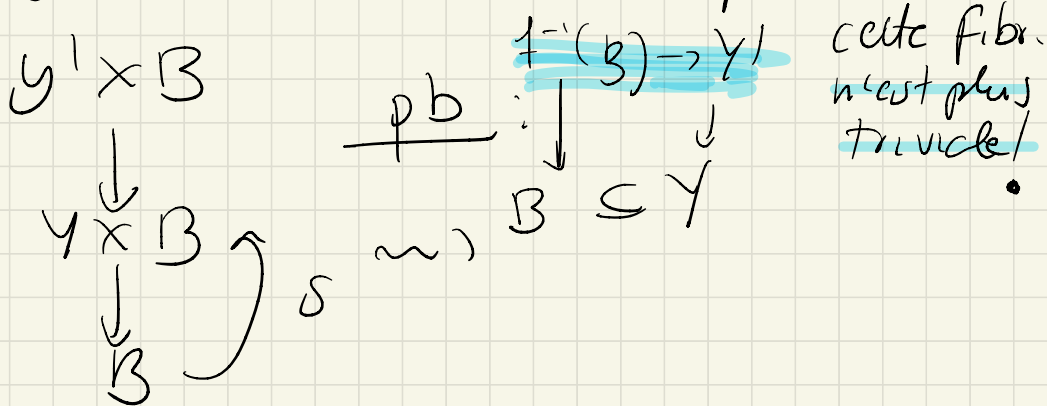 y' × B
↓
Y × B
↓
B
s
pb :
f⁻¹(B) → Y'
↓ ↓
B ⊆ Y
⇝
cette fibr.
n'est plus
triviale!